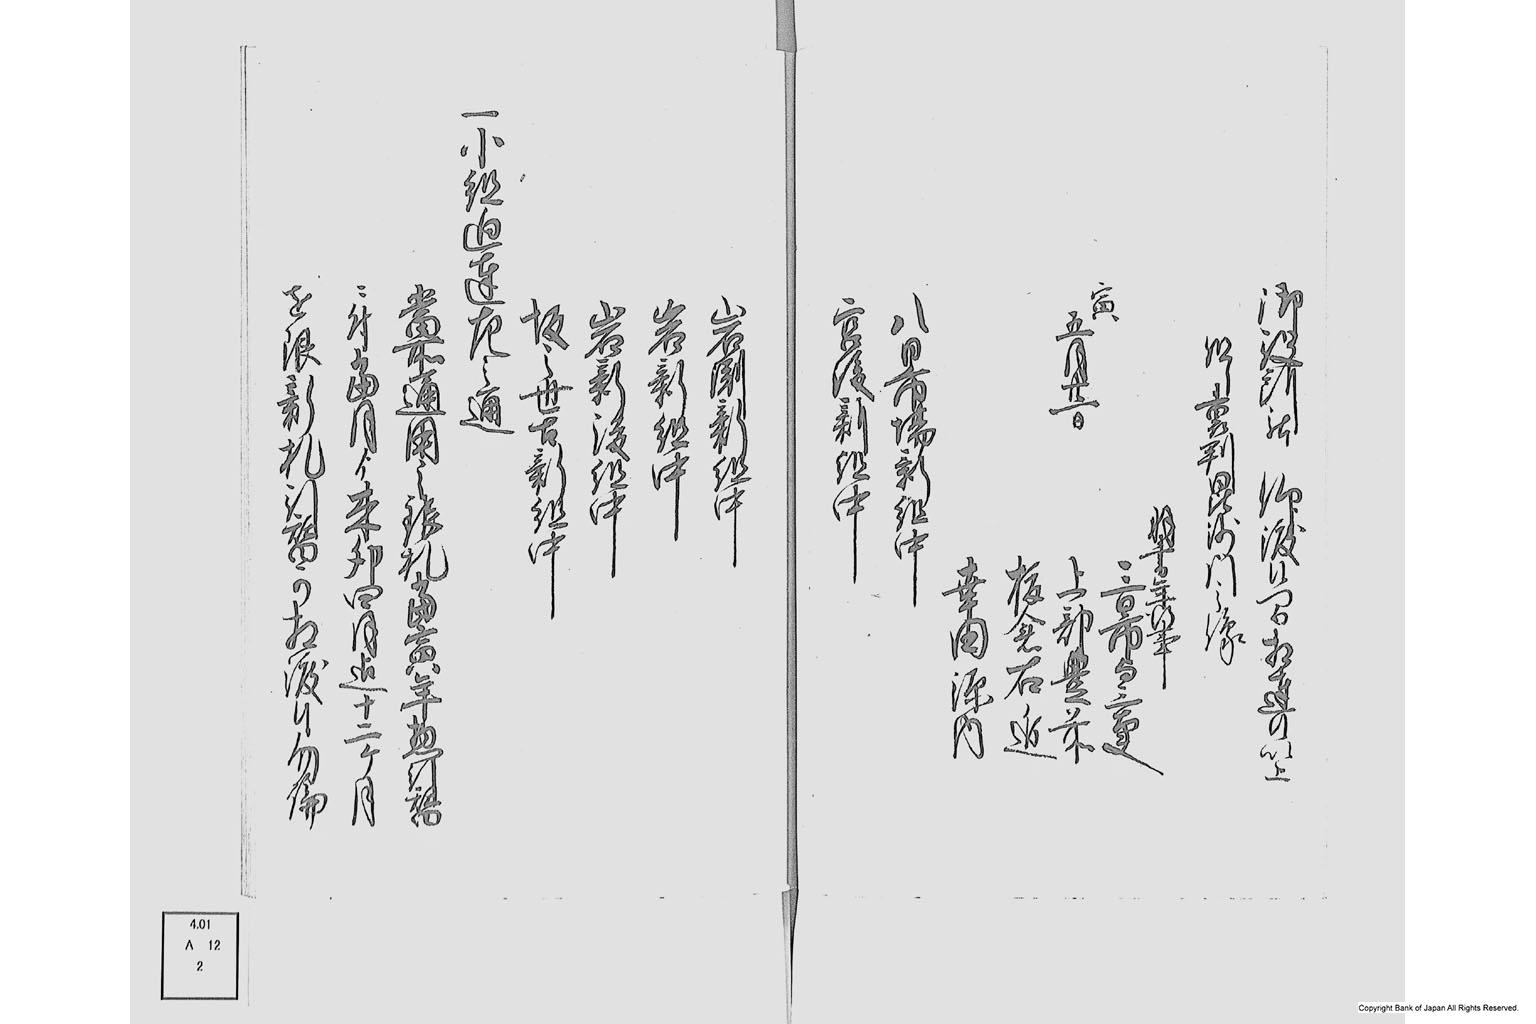 御役所江 御渡候間相達可 以上
但裏判毘沙門之像
寅
五月廿一日
三日市与三
上部豊前
板倉右近
幸田源内
八日市場新組中
宮後新組中
岩渕新組中
岩新組中
岩新後組中
坂之世古新組中
一小組迫連左之通
当所通用之銀札当寅年惣引替
ニ付当月ゟ来卯四月迄十二ケ月
を限新札引替可相渡候勿論
4.01
A 12
2
Copyright Bank of Japan All Rights Reserved.